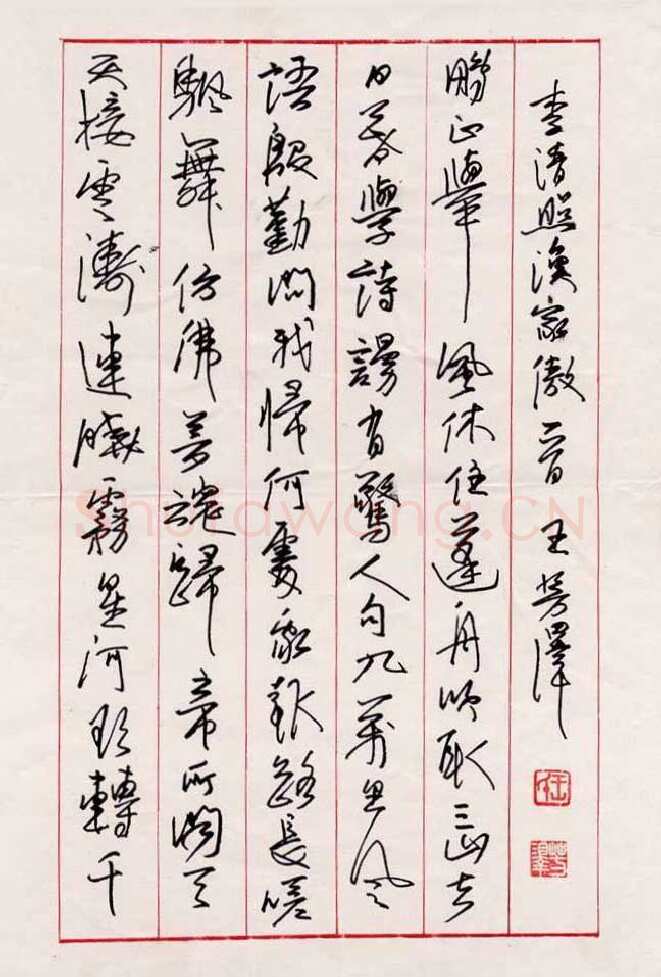 天接雲濤連曉霧星河欲轉千
颿舞仿彿夢魂歸帝所聞天
語殷勤問我歸何處我報路長嗟
日暮學詩謾有驚人句九萬里風
鵬正舉風休住蓬舟吹取三山去
李清照漁家傲一首 王芳澤
Shufawang.CN